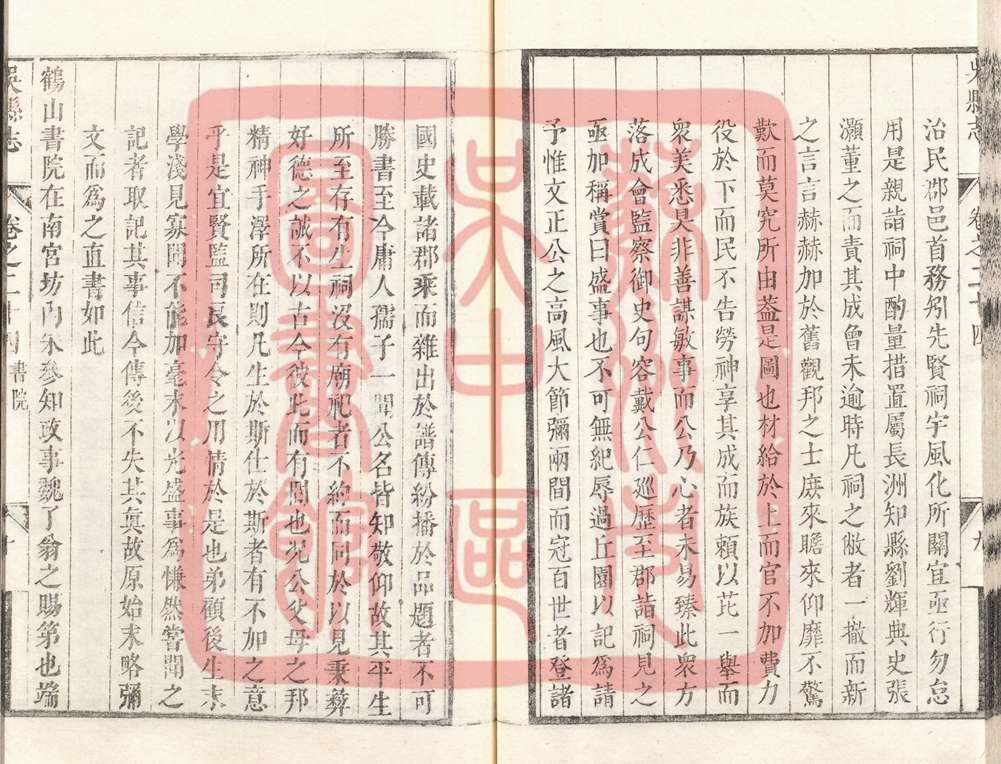 吳縣志 卷之二十四 九
治民郡邑首務矧先賢祠宇風化所關宜亟行勿怠
用是親詣祠中酌量措置屬長洲知縣劉輝典史張
灝董之而責其成曾未逾時凡祠之敝者一撤而新
之言言赫赫加於舊觀邦之士庻來瞻來仰靡不驚
歎而莫究所由葢是圖也材給於上而官不加費力
役於下而民不告勞神享其成而族賴以芘一舉而
衆美悉具非善謀敏事而公乃心者未易臻此衆方
落成會監察御史句容戴公仁廵歷至郡詣祠見之
亟加稱賞曰盛事也不可無紀辱過丘園以記為請
予惟文正公之高風大節彌兩間而冠百世者登諸
國史載諸郡乘而雜出於譜傳紛播於品題者不可
勝書至今庸人孺子一聞公名皆知敬仰故其平生
所至存有生祠沒有廟祀者不約而同於以見秉彜
好德之誠不以古今彼此而有間也况公父母之邦
精神手澤所在則凡生於斯仕於斯者有不加之意
乎是宜賢監司良守令之用情於是也弟顧後生末
學淺見寡聞不能加毫末以光盛事為慊然嘗聞之
記者取記其事信今傳後不失其眞故原始末略彌
文而爲之直書如此
鶴山書院在南宮坊內宋參知政事魏了翁之賜第也端
吳縣志 卷之二十四 書院 十
蘇州市
吳中區
圖書館